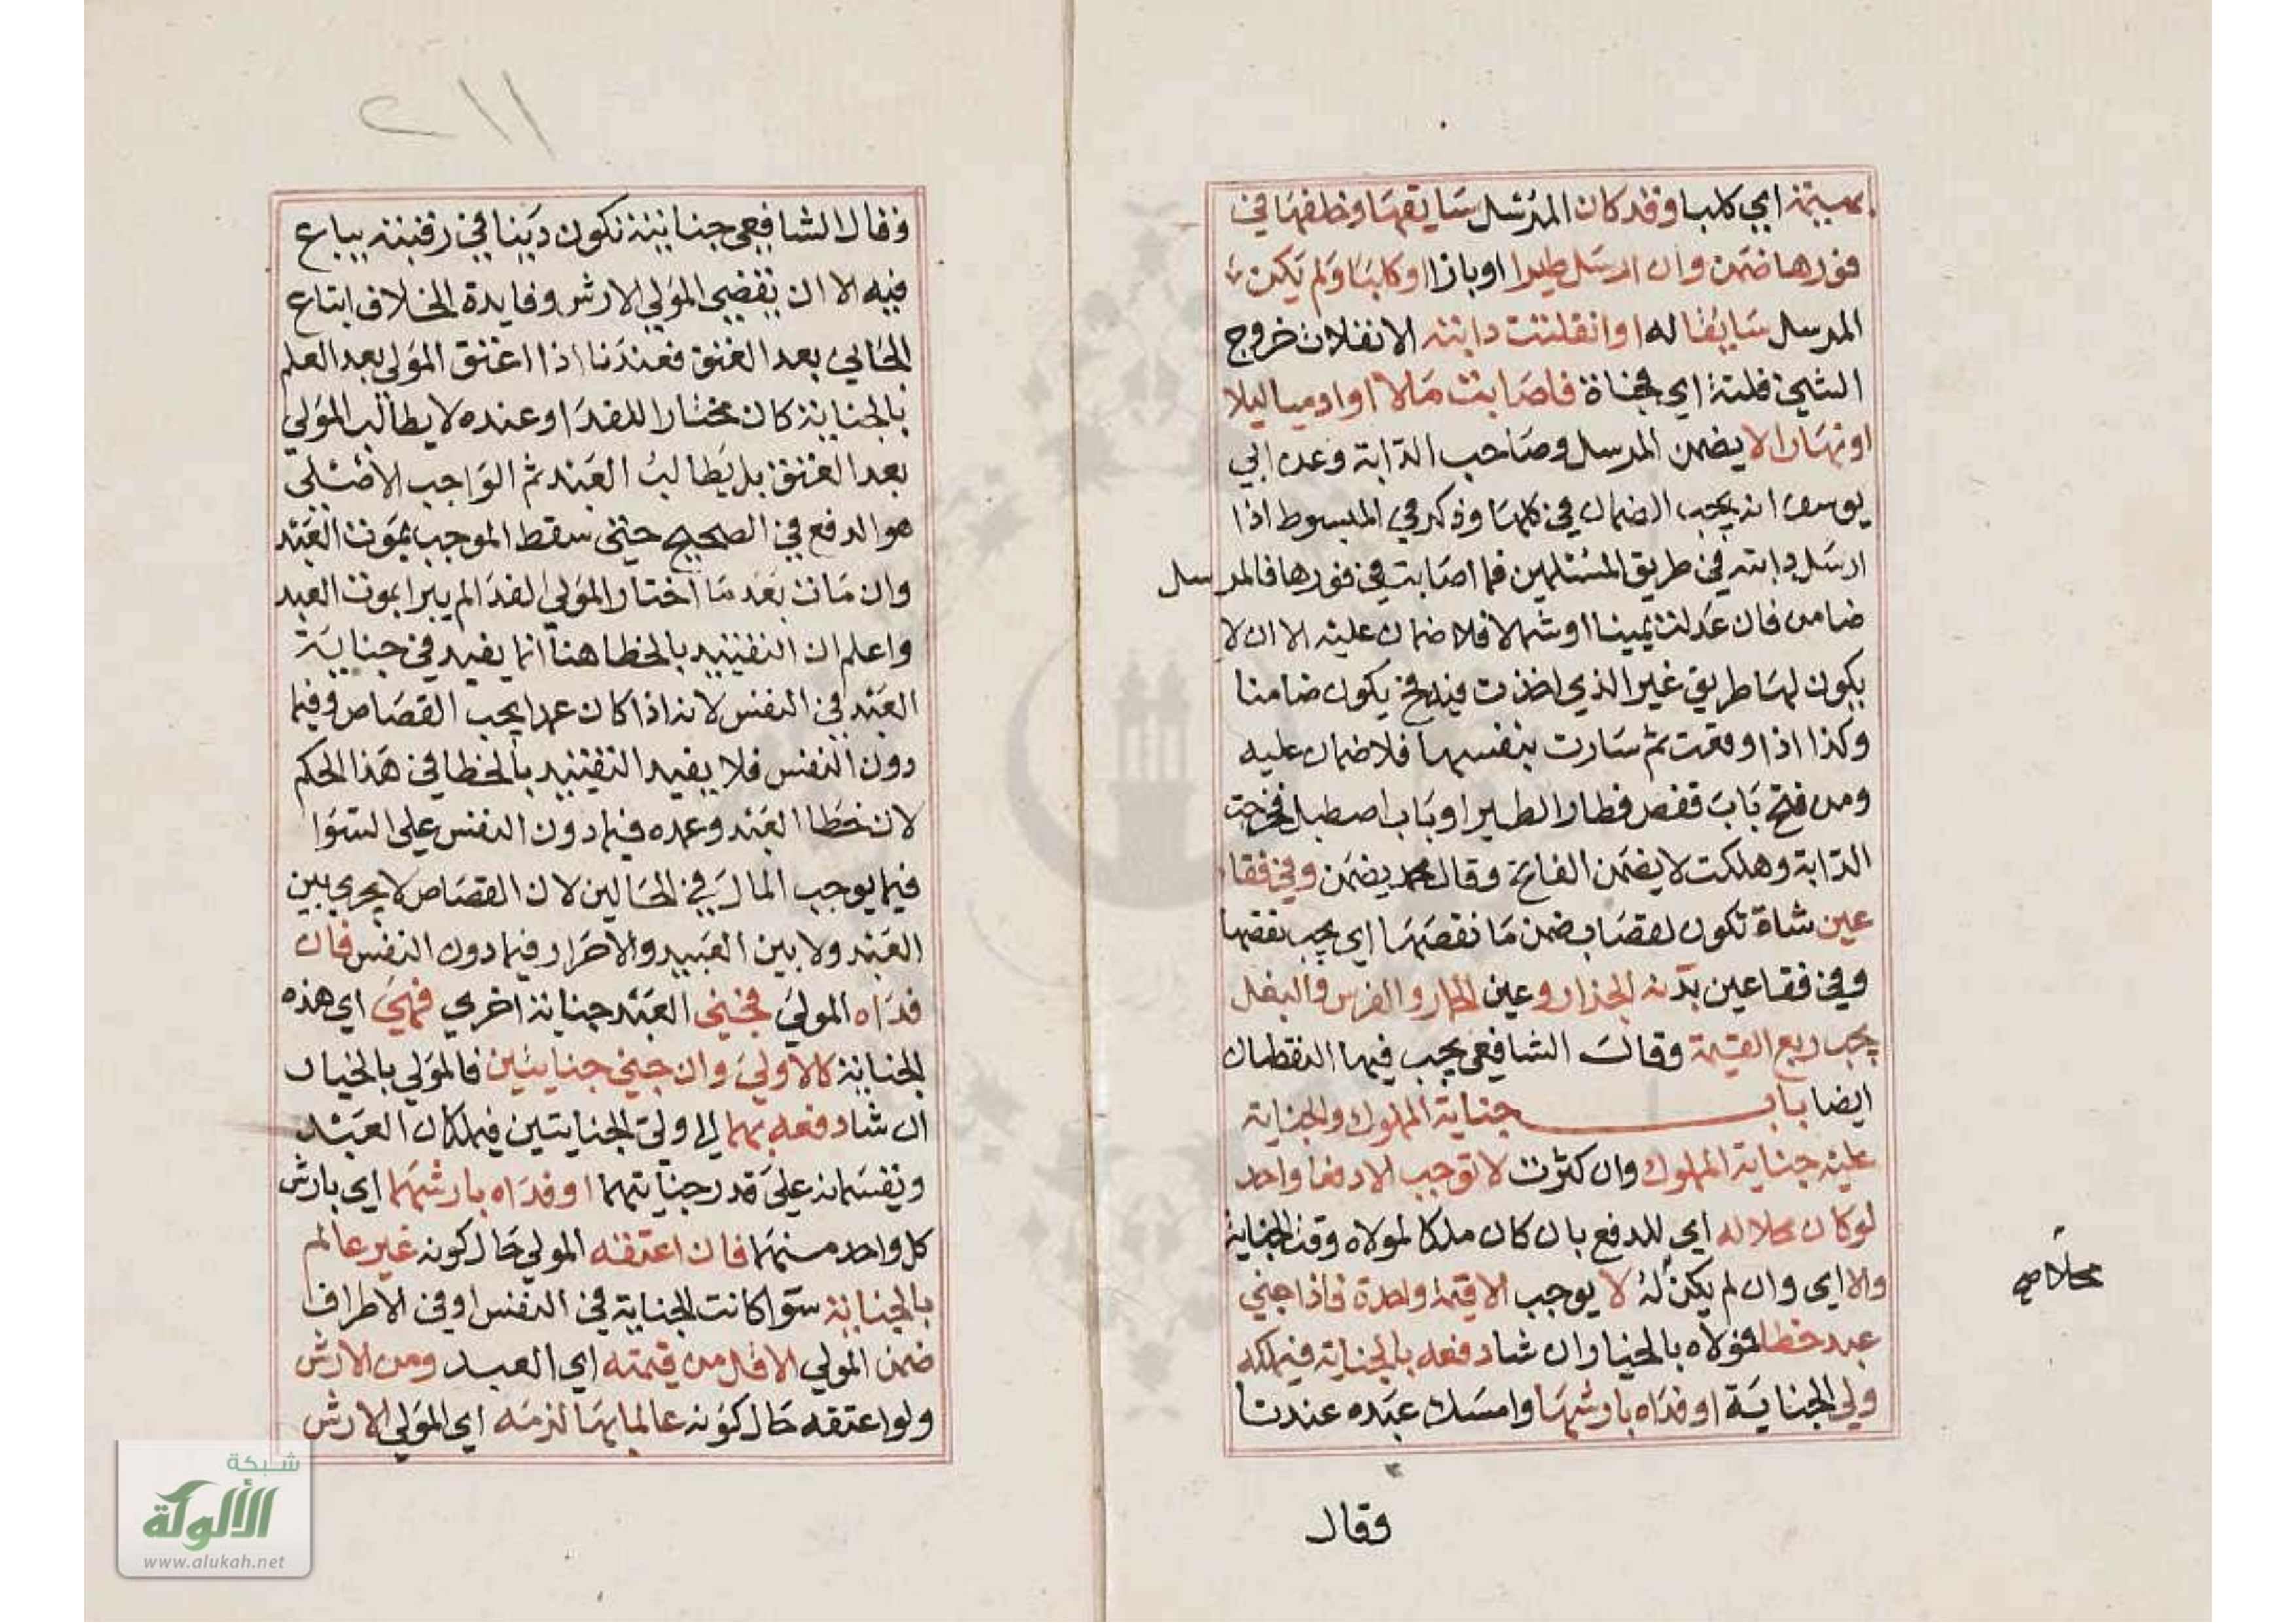 بهيمة اي كلبا وقد كان المرسل سايقها وخلفها في
فورها ضمن وان ارسل طيرا او بازا او كلبا ولم يكن
المرسل سايقا له او انفلتت دابته الانفلات خروج
الشي فلتة اي فجاة فاصابت مالا او ادميا ليلا
او نهارا لا يضمن المرسل وصاحب الدابة وعن ابي
يوسف انه يجب الضمان في كلها وذكر في المبسوط اذا
ارسل دابته في طريق المسلمين فما اصابت في فورها فالمرسل
ضامن فان عدلت يمينا او شمالا فلا ضمان عليه الا ان لا
يكون لها طريق غير الذي اخذت فيه فح يكون ضامنا
وكذا اذا وقفت ثم سارت بنفسها فلا ضمان عليه
ومن فتح باب قفص فطار الطير او باب اصطبل فخرجت
الدابة وهلكت لا يضمن الفاتح وقال محمد يضمن وفي فقا
عين شاة تكون لقصاب ضمن ما نقصها اي يجب نقصها
وفي فقا عين بدنة الجزار وعين الحمار والفرس والبغل
يجب ربع القيمة وقال الشافعي يجب فيها النقصان
ايضا باب جناية المملوك والجناية
عليه جناية المملوك وان كثرت لا توجب الا دفعا واحدا
لو كان محلا له اي للدفع بان كان ملكا لمولاه وقت الجناية
والا اي وان لم يكن له لا يوجب الا قيمة واحدة فاذا جني
عبد خطا فمولاه بالخيار ان شا دفعه بالجناية فيملكه
ولي الجناية او فداه بارشها وامسك عبده عندنا
محلا صح
وقال
٢١١
وقال الشافعي جنايته تكون دينا في رقبته يباع
فيه الا ان يقضي المولي الارش وفايدة الخلاف اتباع
الجاني بعد العتق فعندنا اذا اعتق المولي بعد العلم
بالجناية كان مختارا للفدا وعنده لا يطالب المولي
بعد العتق بل يطالب العبد ثم الواجب الاصلي
هو الدفع في الصحيح حتى سقط الموجب بموت العبد
وان مات بعد ما اختار المولي الفدا لم يبرا بموت العبد
واعلم ان التقييد بالخطا هنا انما يفيد في جناية
العبد في النفس لانه اذا كان عمدا يجب القصاص وفيما
دون النفس فلا يفيد التقييد بالخطا في هذا الحكم
لان خطا العبد وعمده فيما دون النفس على السوا
فيما يوجب المال في الحالين لان القصاص لا يجري بين
العبد ولا بين العبيد والاحرار فيما دون النفس فان
فداه المولي فجني العبد جناية اخري فهي اي هذه
الجناية كالاولي وان جني جنايتين فالمولي بالخيار
ان شا دفعه بهما الي ولي الجنايتين فيملكان العبد
ويقسمانه علي قدر جنايتهما او فداه بارشهما اي بارش
كل واحد منهما فان اعتقه المولي حال كونه غير عالم
بالجناية سوا كانت الجناية في النفس او في الاطراف
ضمن المولي الاقل من قيمته اي العبد ومن الارش
ولو اعتقه حال كونه عالما بها لزمه اي المولي الارش
شبكة
الألوكة
www.alukah.net